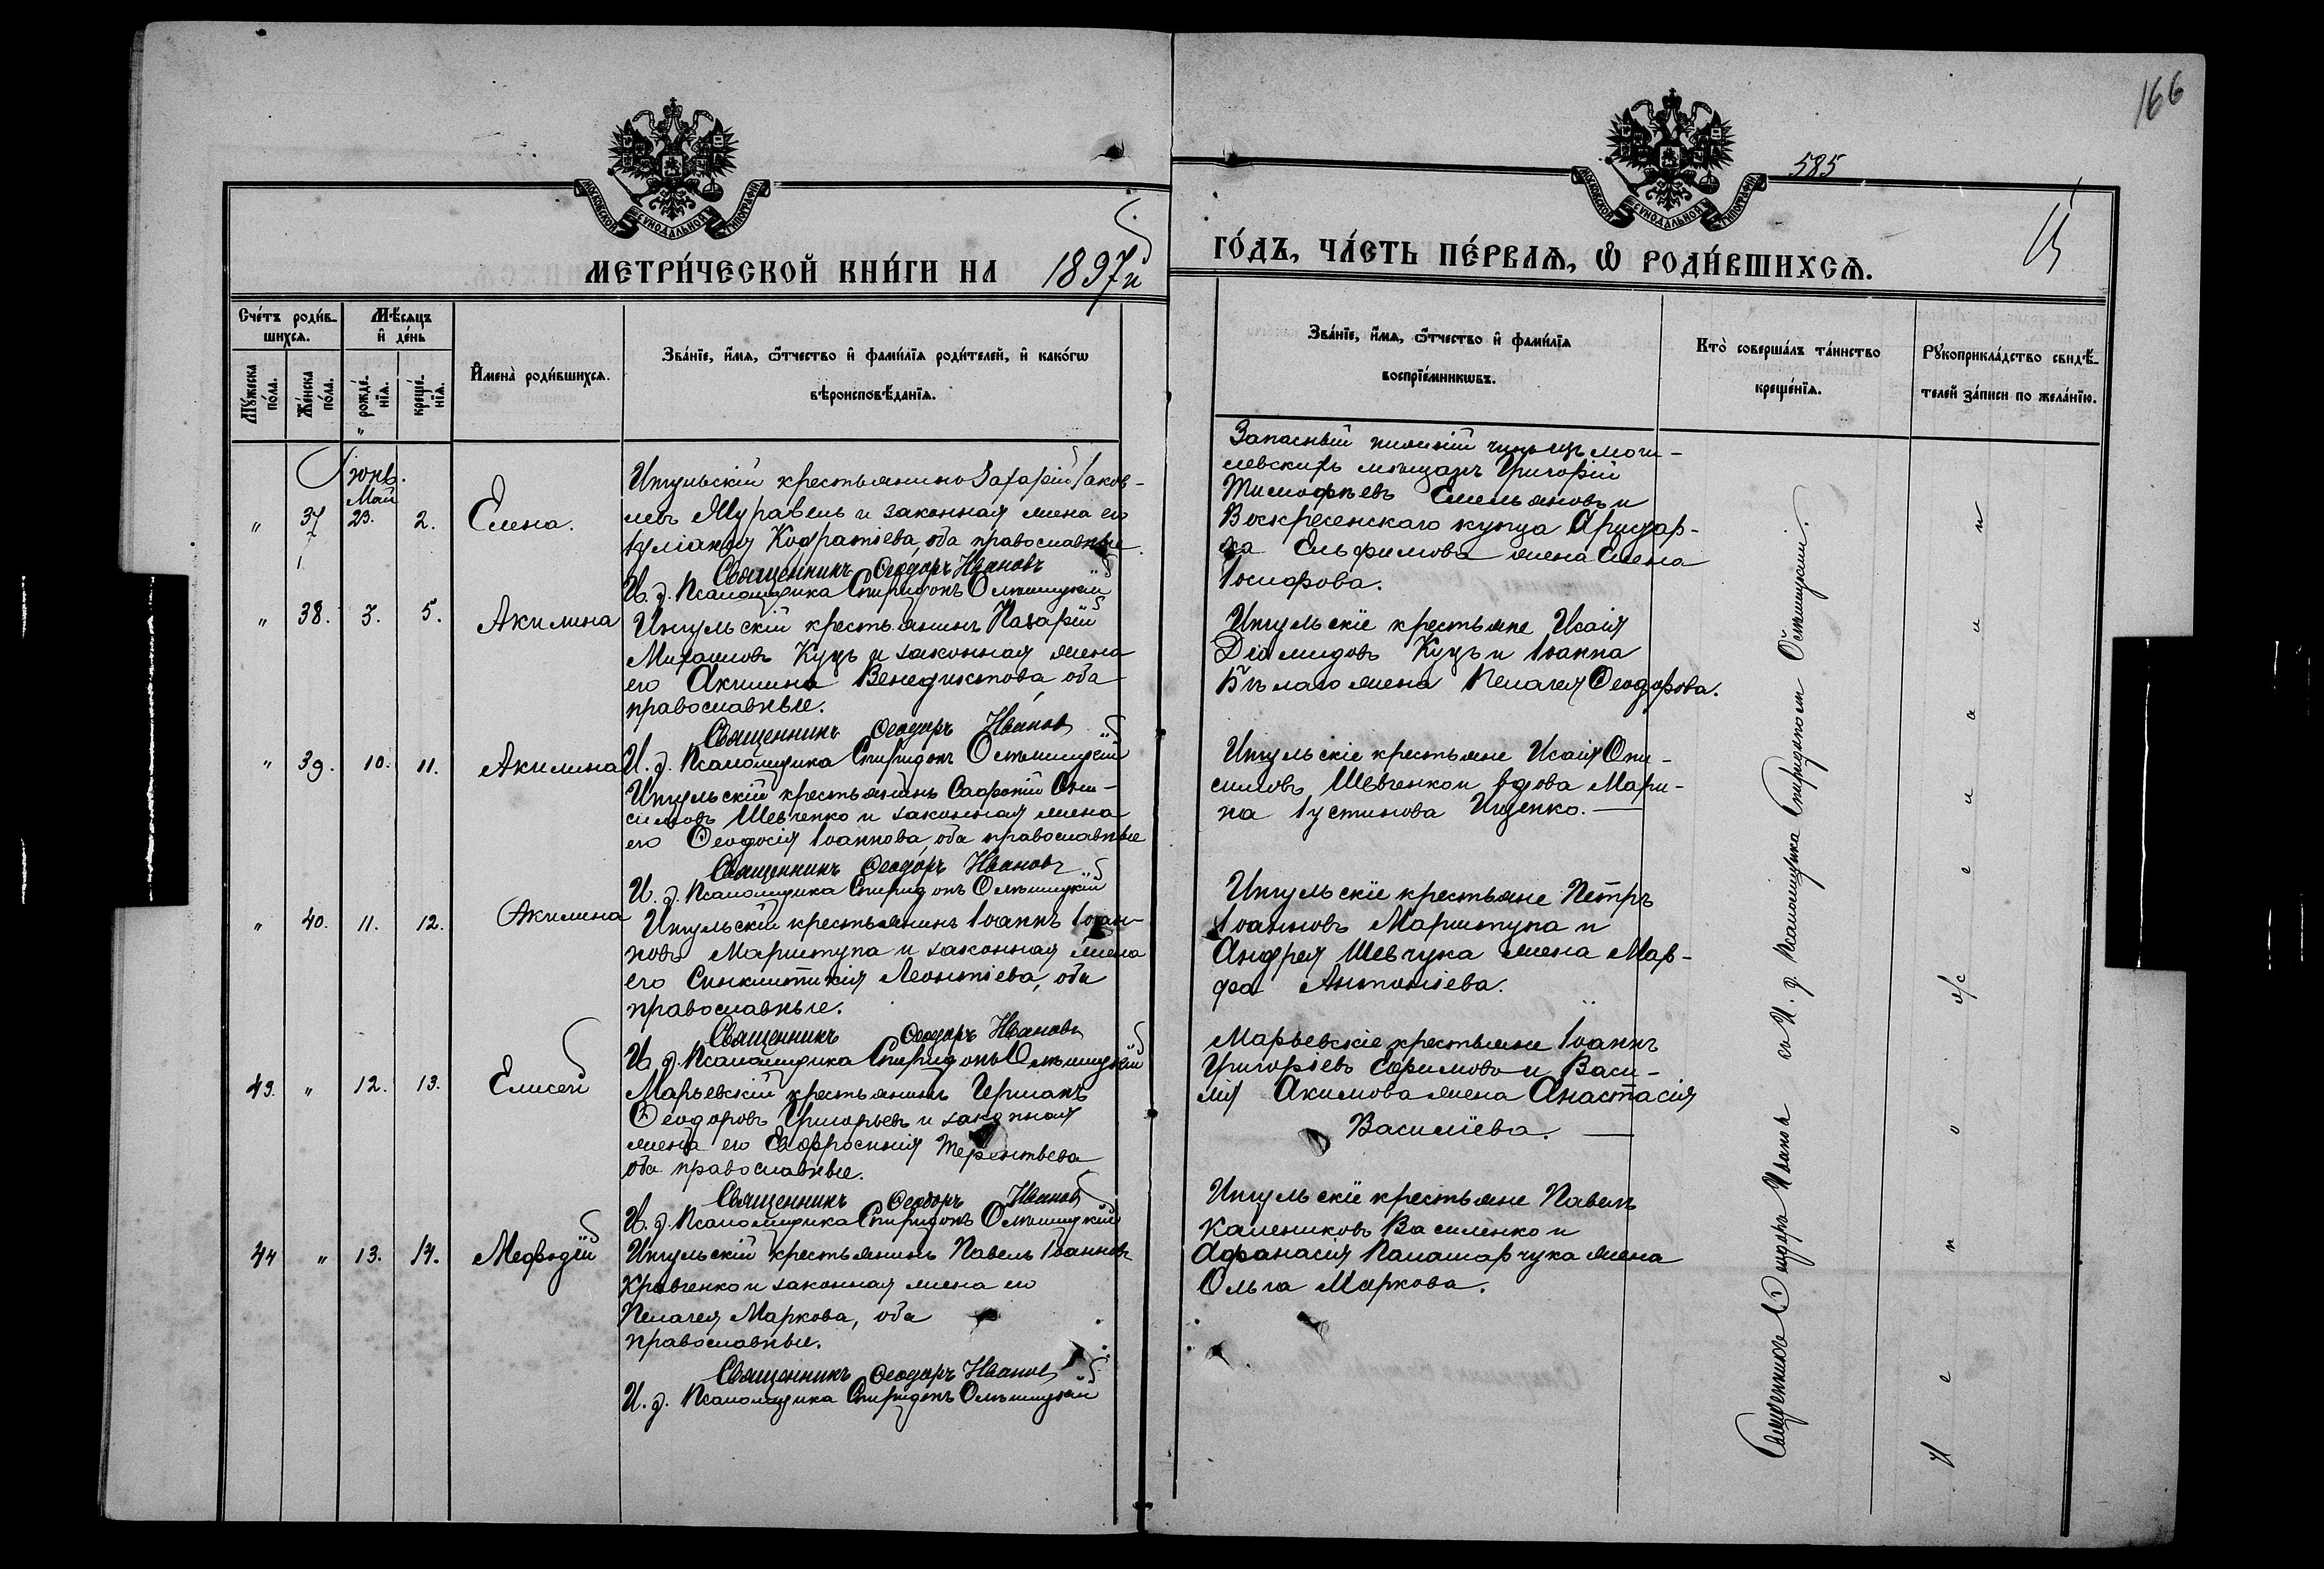 166
585
МОСКОВСКОЙ СѴНОДАЛЬНОЙ ТИПОГРАФІИ.
МОСКОВСКОЙ СѴНОДАЛЬНОЙ ТИПОГРАФІИ.
МЕТРИ́ЧЕСКОЙ КНИ́ГИ НА 1897й
ГО́ДЪ, ЧА́СТЬ ПЕ́РВАѦ, Ѽ РОДИ́ВШИХСѦ.
Сче́тъ роди́в-
шихсѧ.
Мꙋ́жеска по́ла.
Же́нска по́ла.
Мѣ́сѧцъ и҆ де́нь
рожде́-нїѧ.
креще́-нїѧ.
И҆мена̀ роди́вшихсѧ.
Зва́нїе, и҆́мѧ, ѻ҆́тчество и҆ фами́лїѧ роди́телей, и҆ како́гѡ
вѣроисповѣ́данїѧ.
Зва́нїе, и҆́мѧ, ѻ҆́тчество и҆ фами́лїѧ
воспрїе́мникѡвъ.
Кто̀ соверша́лъ та́инство
креще́нїѧ.
Рꙋкоприкла́дство свидѣ́-
телей за́писи по жела́нїю.
Іюнь.
Май
" 37 23. 2. Елена.
Ингульскій крестьянинъ Захарій Іаков-
левъ Муравель и законная жена его
Іуліанія Кодратіева, оба православные.
Священникъ Ѳеодоръ Ивановъ
И. д. Псаломщика Спиридонъ Ольшицкій
Запасный нижній чинъ изъ моги-
левскихъ мѣщанъ Григорій
Тимофѣевъ Емельяновъ и
Воскресенскаго купца Аристар-
ха Ельфимова жена Елена
Іосифова.
" 38. 3. 5. Акилина
Ингульскій крестьянинъ Назарій
Михаиловъ Куцъ и законная жена
его Акилина Венедиктова, оба
православные.
Священникъ Ѳеодоръ Ивановъ
И. д. Псаломщика Спиридонъ Ольшицкій
Ингульскіе крестьяне Исаія
Діомидовъ Куцъ и Іоанна
Бѣлаго жена Пелагея Ѳеодорова.
" 39. 10. 11. Акилина
Ингульскій крестьянинъ Софоній Они-
симовъ Шевченко и законная жена
его Ѳеодосія Іоаннова, оба православные
Священникъ Ѳеодоръ Ивановъ
И. д. Псаломщика Спиридонъ Ольшицкій
Ингульскіе крестьяне Исаія Они-
симовъ Шевченко и вдова Мари-
на Іустинова Ищенко.
" 40. 11. 12. Акилина
Ингульскій крестьянинъ Іоаннъ Іоан-
новъ Мариштупа и законная жена
его Синклитикія Леонтіева, оба
православные.
Священникъ Ѳеодоръ Ивановъ
И. д. Псаломщика Спиридонъ Ольшицкій
Ингульскіе крестьяне Петръ
Іоанновъ Мариштупа и
Андрея Шевчука жена Мар-
ѳа Антоніева.
43. " 12. 13. Елисей
Марьевскій крестьянинъ Германъ
Ѳеодоровъ Григорьевъ и законная
жена его Евфросинія Терентьева
оба православные.
Священникъ Ѳеодоръ Ивановъ
И. д. Псаломщика Спиридонъ Ольшицкій
Марьевскіе крестьяне Іоаннъ
Григоріевъ Ефимовъ и Васи-
лія Акимова жена Анастасія
Василіева.
44 " 13. 14. Меѳодій
Ингульскій крестьянинъ Павелъ Іоанновъ
Кравченко и законная жена его
Пелагея Маркова, оба
православные.
Священникъ Ѳеодоръ Ивановъ
И. д. Псаломщика Спиридонъ Ольшицкій
Ингульскіе крестьяне Павелъ
Калениковъ Василенко и
Афанасія Паламарчука жена
Ольга Маркова.
Священникъ Ѳеодоръ Ивановъ съ И. д. Псаломщика Спиридономъ Ольшицкимъ.